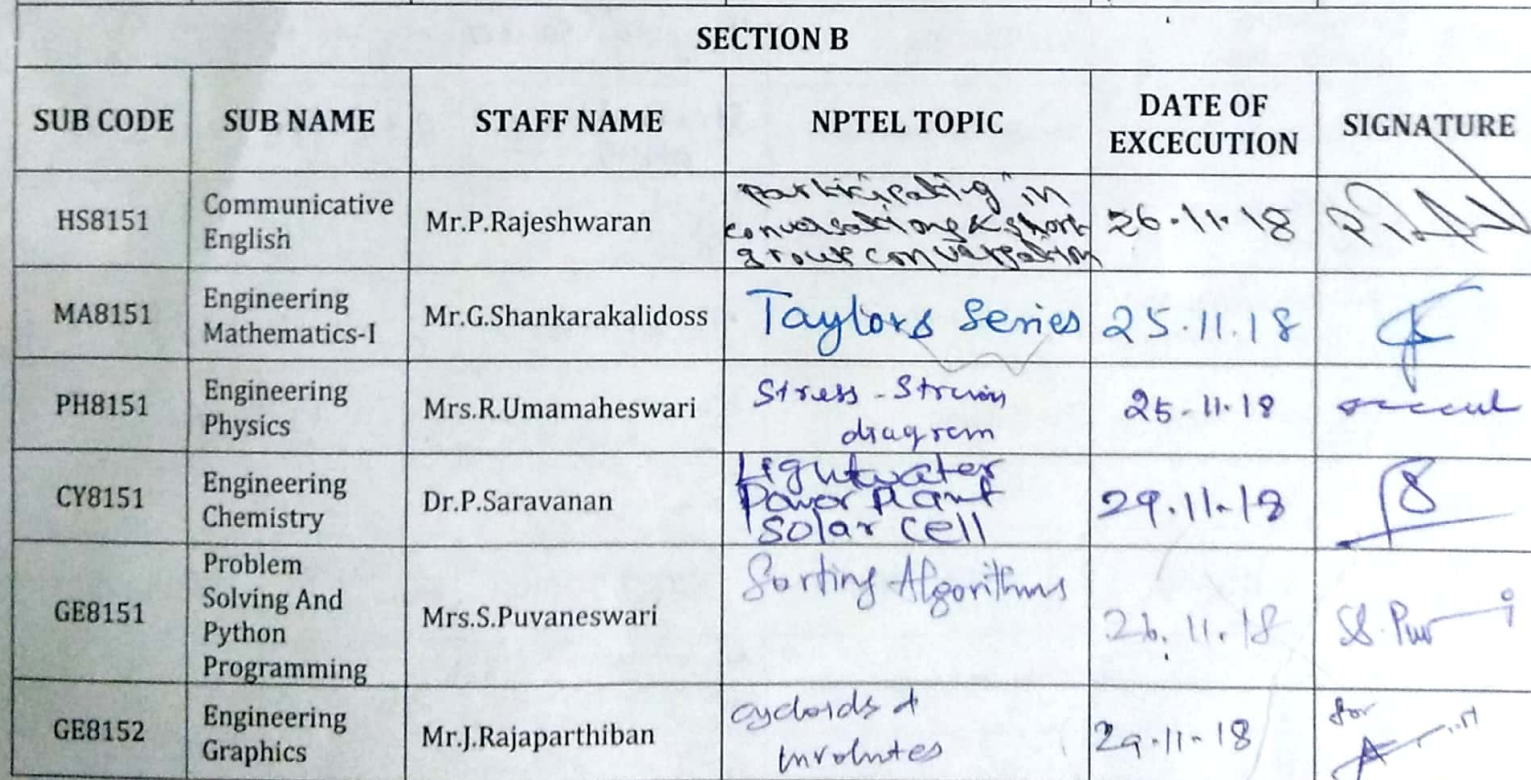 SECTION B
SUB CODE SUB NAME STAFF NAME NPTEL TOPIC DATE OF EXCECUTION SIGNATURE
HS8151
Communicative
English
Mr.P.Rajeshwaran
participating in
conversations & short
group conversation
26.11.18
MA8151
Engineering
Mathematics-I
Mr.G.Shankarakalidoss
Taylors Series
25.11.18
PH8151
Engineering
Physics
Mrs.R.Umamaheswari
Stress - Strain
diagram
25-11-18
CY8151
Engineering
Chemistry
Dr.P.Saravanan
Lightwater
Power Plant
Solar cell
29.11.18
GE8151
Problem
Solving And
Python
Programming
Mrs.S.Puvaneswari
Sorting Algorithms
26.11.18
GE8152
Engineering
Graphics
Mr.J.Rajaparthiban
cycloids &
Involutes
29-11-18
for